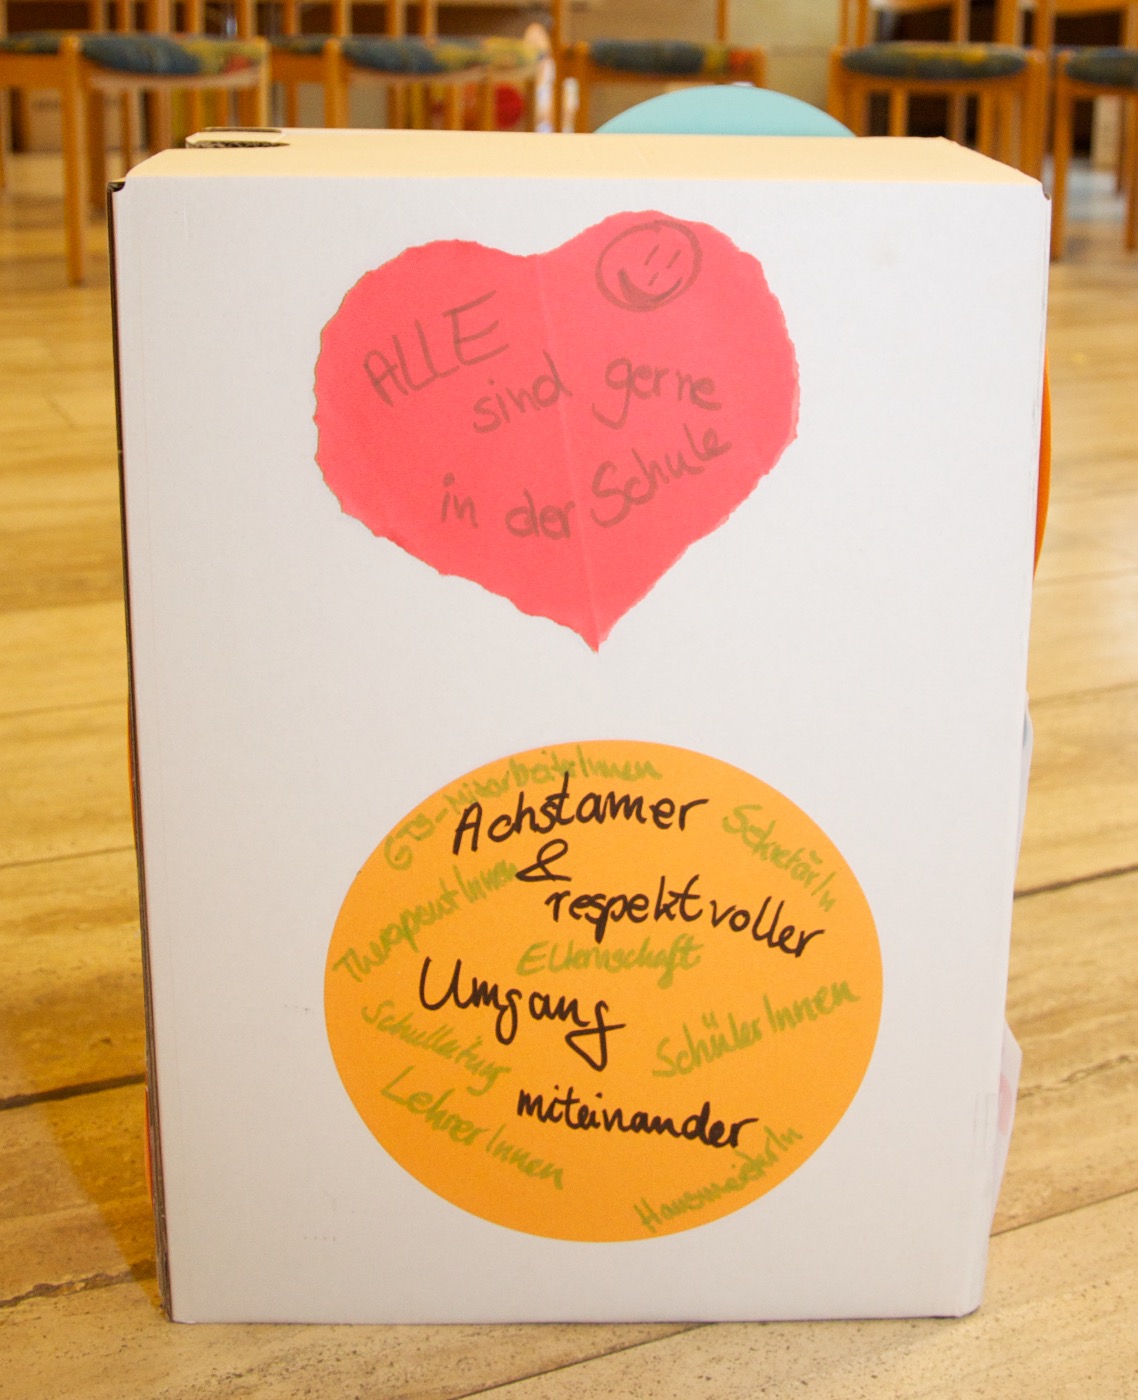 ALLE
sind gerne
in der Schule
GTS-MitarbeiterInnen
Achstamer
SekretärIn
&
TherapeutInnen
respektvoller
Elternschaft
Umgang
SchülerInnen
Schulleitung
LehrerInnen
miteinander
HausmeisterIn